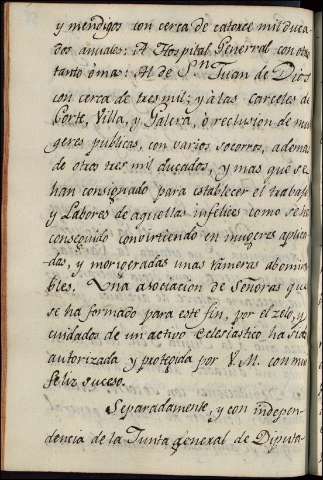 y mendigos con cerca de catorce mil duca-
dos anuales: Al Hospital General con otro
tanto ò mas: Al de Sn Juan de Dios
con cerca de tres mil; y à las carceles de
Corte, Villa, y Galera, ò reclusion de mu
geres publicas, con varios socorros, ademas
de otros tres mil ducados, y mas que se
han consignado para establecer el trabajo
y Labores de aquellas infelices como se ha
conseguido convirtiendo en mugeres aplica
das, y morigeradas unas rameras abomina
bles. Una asociacion de Señoras que
se ha formado para este fin, por el zelo, y
cuidados de un activo Eclesiastico ha sido
autorizada y protegida por V. M. con mui
feliz suceso.
Separadamente, y con indepen-
dencia de la Junta general de Diputa-